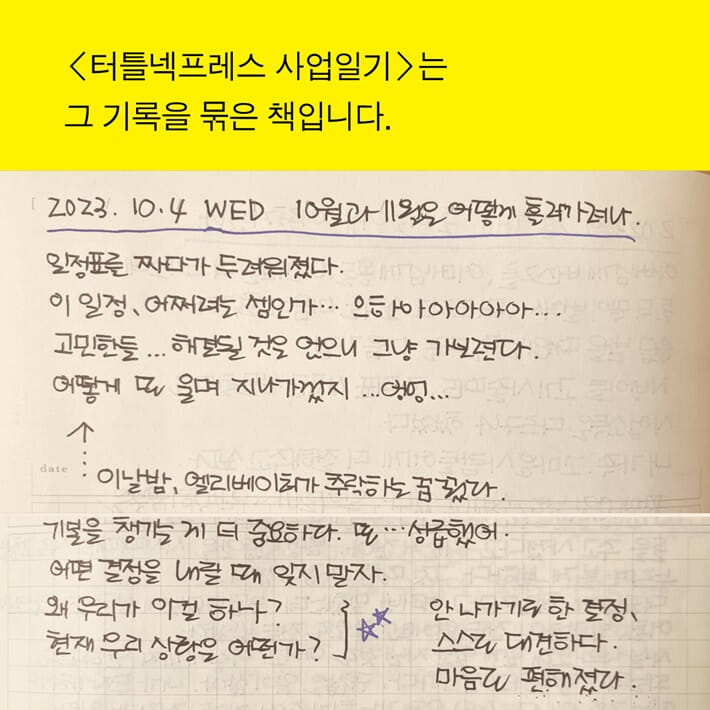 <터틀넥프레스 사업일기>는
그 기록을 묶은 책입니다.
2023. 10. 4 WED 10월과 11월은 어떻게 흘러가려나.
일정표를 짜다가 두려워졌다.
이 일정, 어쩌려는 셈인가… 으하아아아아아...
고민한들 ... 해결될 것은 없으니 그냥 가보련다.
어떻게 또 울며 지나가겠지 ...엉엉...
date
이날밤, 엘리베이터가 추락하는 꿈 꿨다.
기본을 챙기는 게 더 중요하다. 또… 성급했어.
어떤 결정을 내릴 때 잊지 말자.
왜 우리가 이걸 하나?
현재 우리 상황은 어떤가?
안 나가기로 한 결정,
스스로 대견하다.
마음도 편해졌다.